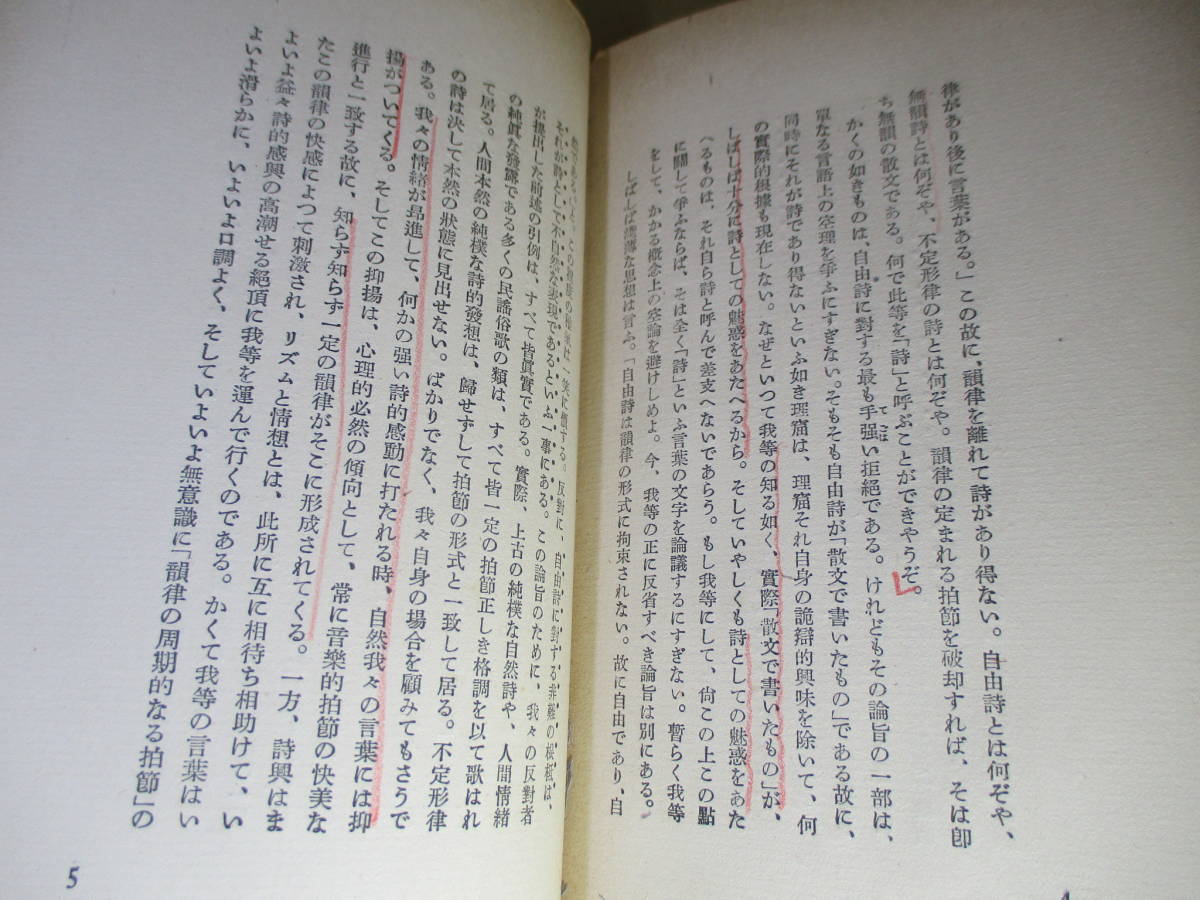 律があり後に言葉がある。」この故に、韻律を離れて詩があり得ない。自由詩とは何ぞや、
無韻詩とは何ぞや、不定形律の詩とは何ぞや。韻律の定まれる拍節を破却すれば、そは卽
ち無韻の散文である。何で此等を「詩」と呼ぶことができやうぞ。
かくの如きものは、自由詩に對する最も手强い拒絕である。けれどもその論旨の一部は、
てごは
單なる言語上の空理を爭ふにすぎない。そもそも自由詩が「散文で書いたもの」である故に、
同時にそれが詩であり得ないといふ如き理窟は、理窟それ自身の詭辯的興味を除いて、何
の實際的根據も現在しない。なぜといつて我等の知る如く、實際「散文で書いたもの」が、
しばしば十分に詩としての魅惑をあたへるから。そしていやしくも詩としての魅惑をあた
へるものは、それ自ら詩と呼んで差支へないであらう。もし我等にして、尙この上この點
に關して爭ふならば、そは全く「詩」といふ言葉の文字を論議するにすぎない。暫らく我等
をして、かかる概念上の空論を避けしめよ。今、我等の正に反省すべき論旨は別にある。
しばしば淺薄な思想は言ふ。「自由詩は韻律の形式に拘束されない。故に自由であり、自
一笑に價する。反對に、自由詩に對する非難の根柢は、
それが詩として不自然な表現であるといふ一事にある。この論旨のために、我々の反對者
が提出した前述の引例は、すべて皆眞實である。實際、上古の純樸な自然詩や、人間情緖
の純眞な發露である多くの民謠俗歌の類は、すべて皆一定の拍節正しき格調を以て歌はれ
て居る。人間本然の純樸な詩的發想は、歸せずして拍節の形式と一致して居る。不定形律
の詩は決して本然の狀態に見出せない。ばかりでなく、我々自身の場合を顧みてもさうで
ある。我々の情緖が昂進して、何かの强い詩的感動に打たれる時、自然我々の言葉には抑
揚がついてくる。そしてこの抑揚は、心理的必然の傾向として、常に音樂的拍節の快美な
進行と一致する故に、知らず知らず一定の韻律がそこに形成されてくる。一方、詩興はま
たこの韻律の快感によつて刺激され、リズムと情想とは、此所に互に相待ち相助けて、い
よいよ益々詩的感興の高潮せる絕頂に我等を運んで行くのである。かくて我等の言葉はい
よいよ滑らかに、いよいよ口調よく、そしていよいよ無意識に「韻律の周期的なる拍節」の
5